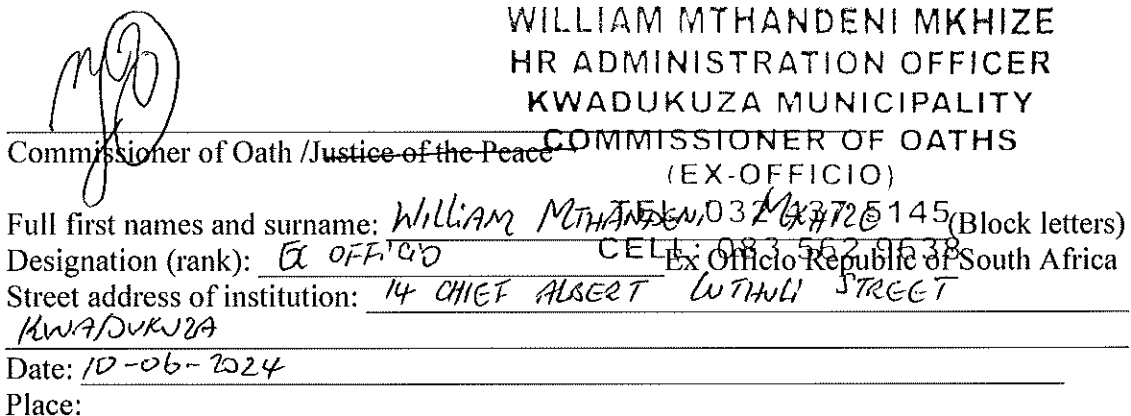 WILLIAM MTHANDENI MKHIZE
HR ADMINISTRATION OFFICER
KWADUKUZA MUNICIPALITY
COMMISSIONER OF OATHS
(EX-OFFICIO)
Commissioner of Oath /Justice of the Peace
TEL: 032 437 5145
Full first names and surname: WILLIAM MTHANDENI MKHIZE (Block letters)
CELL: 083 562 9638
Designation (rank): EX OFFICIO Ex Officio Republic of South Africa
Street address of institution: 14 CHIEF ALBERT LUTHULI STREET
KWADUKUZA
Date: 10-06-2024
Place: